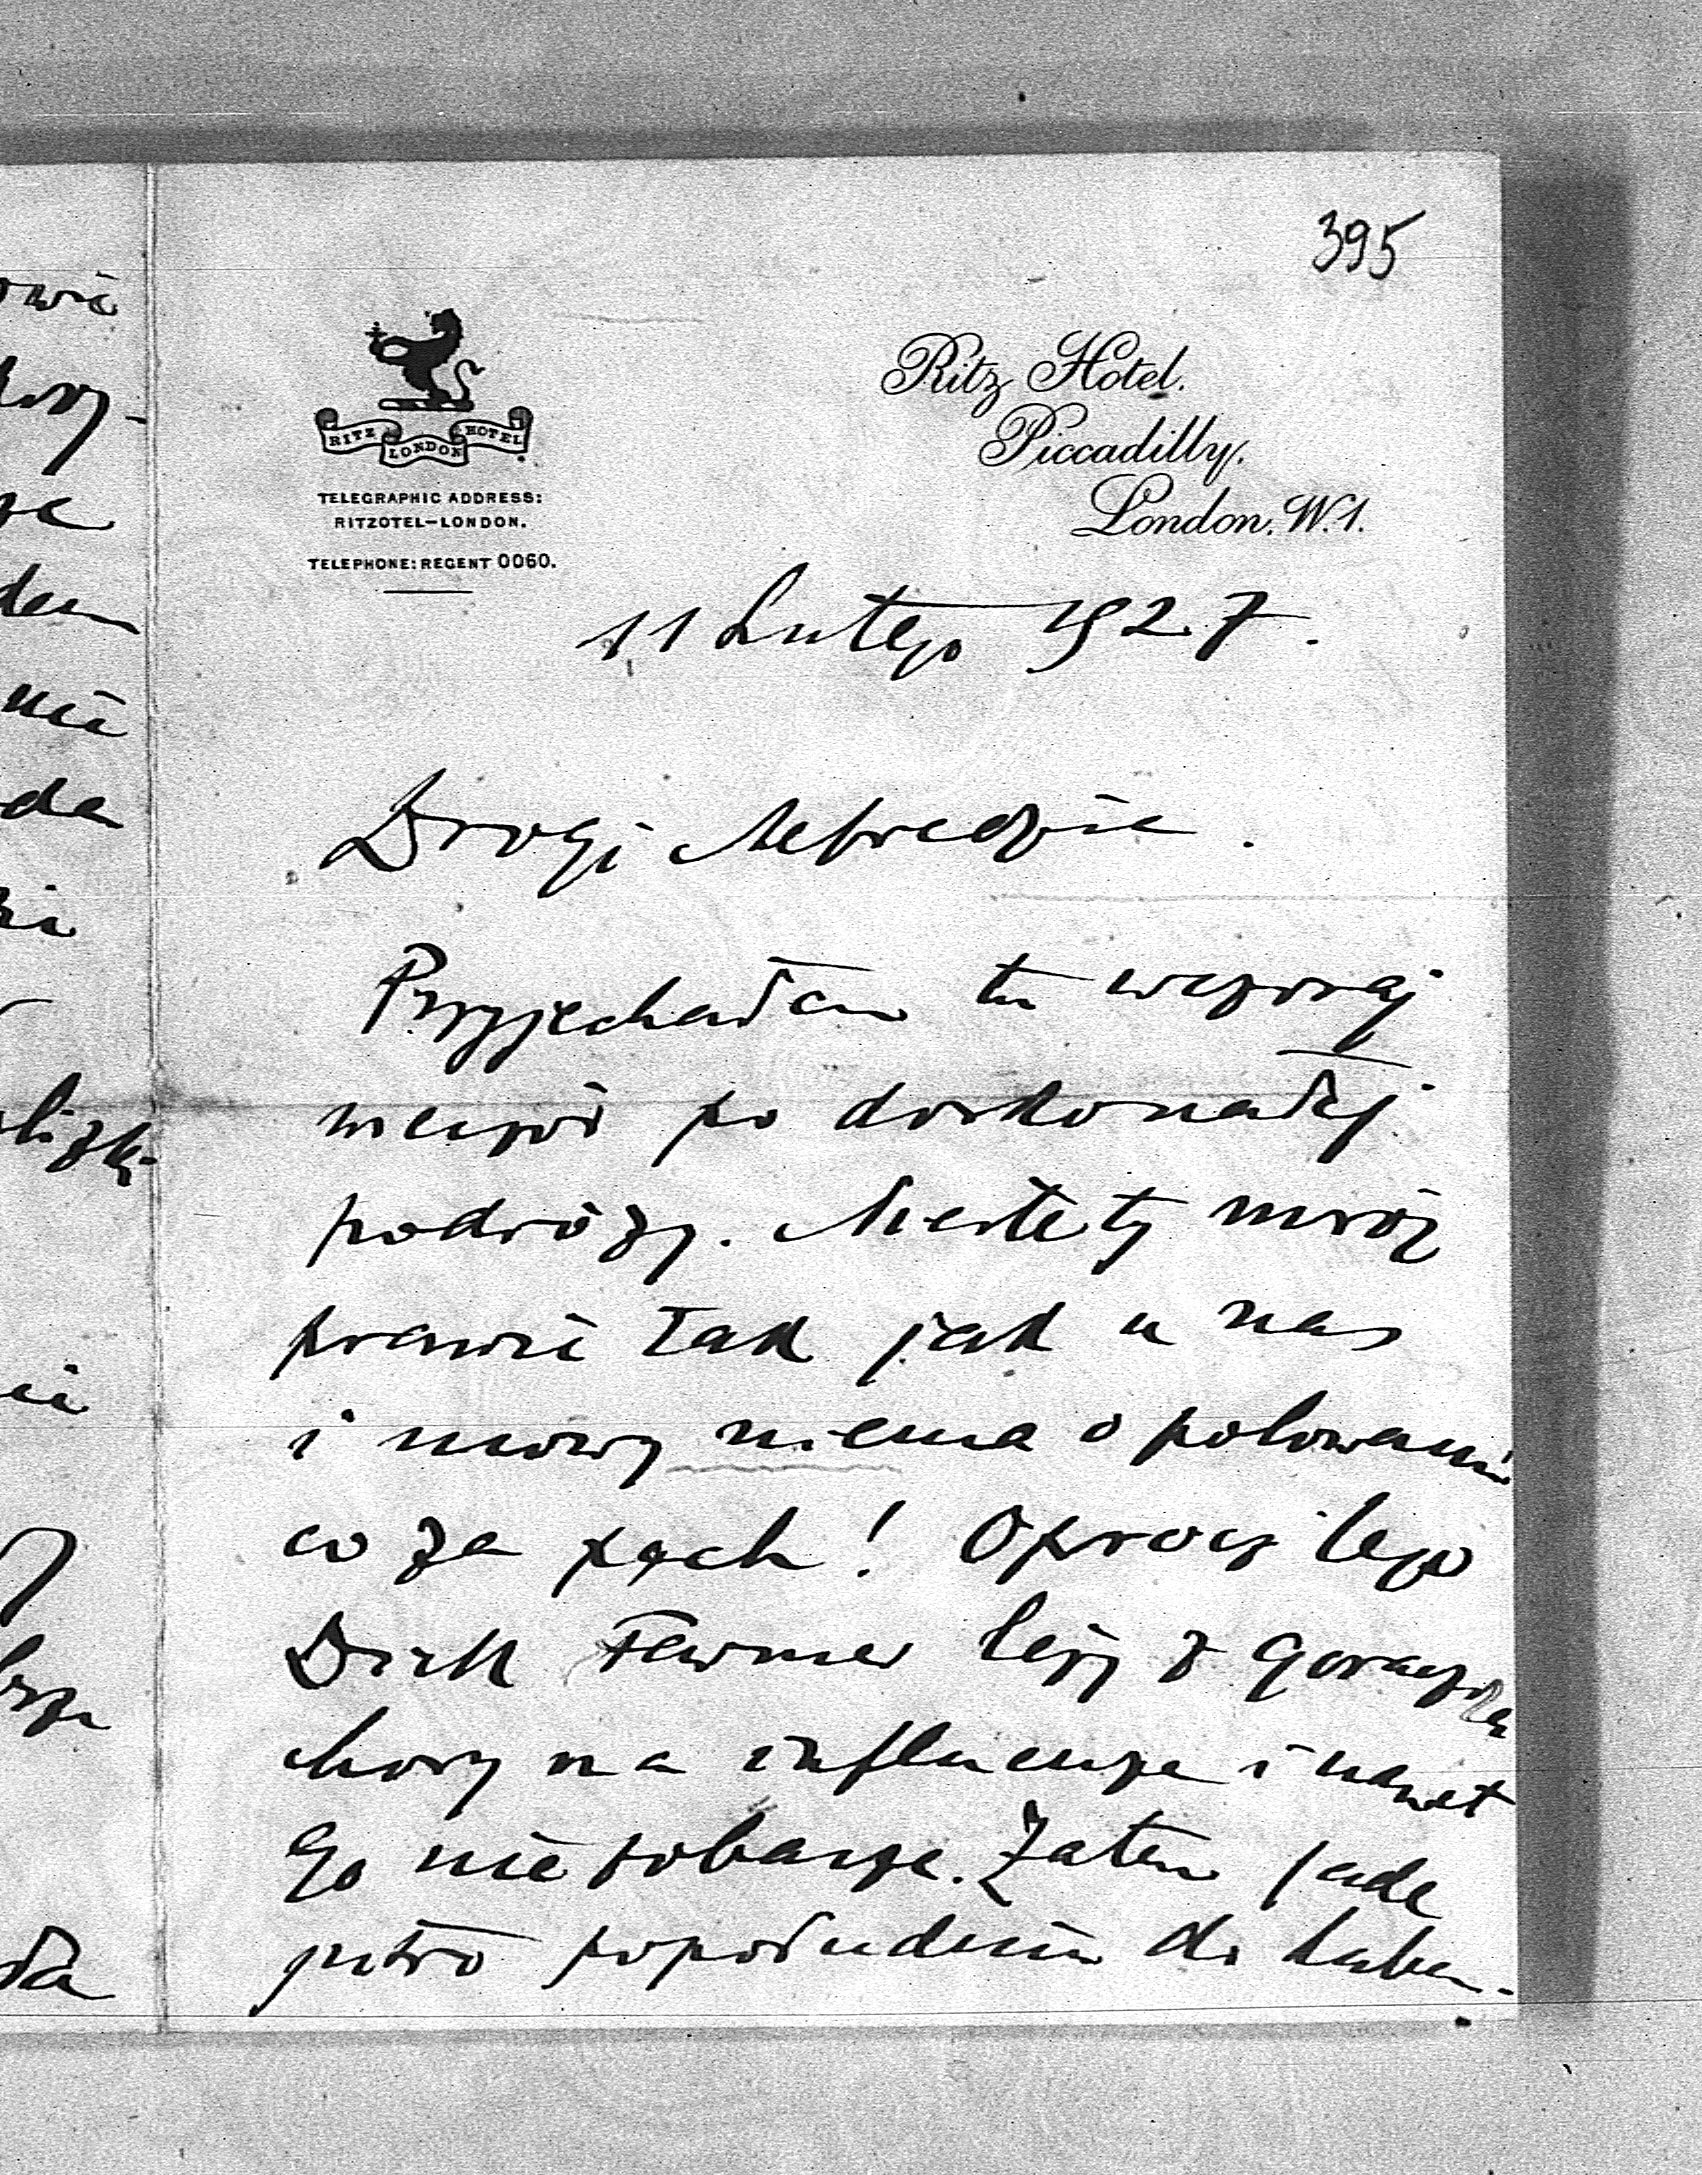 395
RITZ HOTEL
LONDON
TELEGRAPHIC ADDRESS:
RITZOTEL–LONDON.
TELEPHONE: REGENT 0060.
Ritz Hotel.
Piccadilly.
London. W.1.
11 Lutego 1927.
Drogi Alfredzie.
Przyjechałem tu wczoraj
wieczór po doskonałej
podróży. Niestety mróz
prawie tak jak u nas
i mowy niema o polowaniu
co za pech! Oprócz tego
Dick Fawner leży z gorączką
chory na influenze i nawet
go nie zobaczę. Zatem jadę
jutro popołudniu do